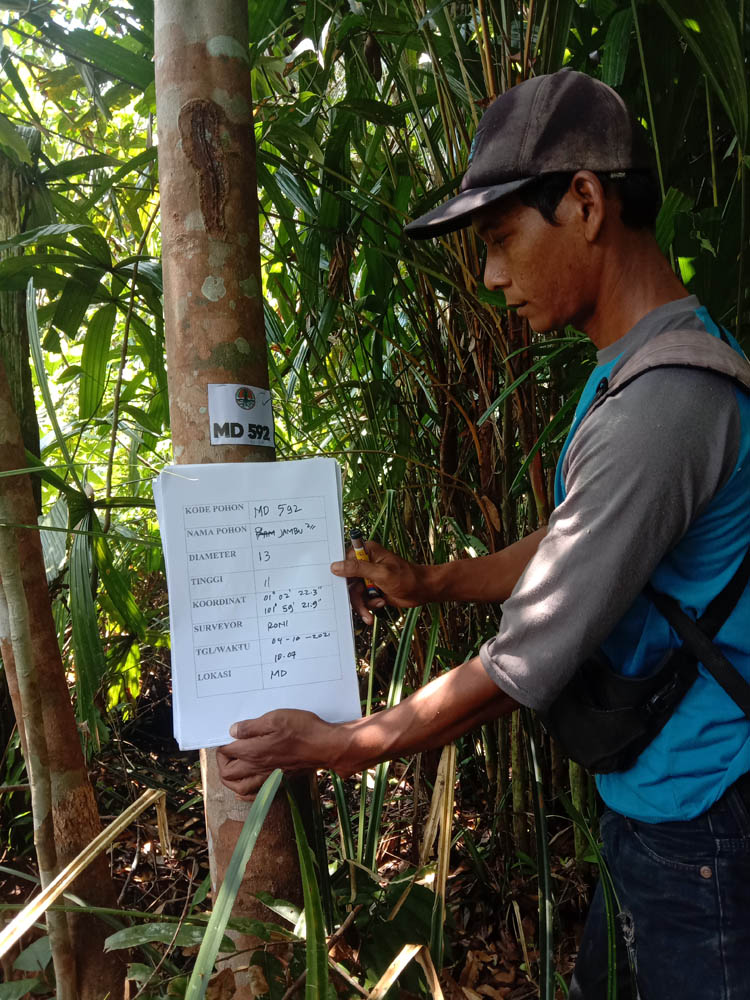 MD 592
KODE POHON MD 592
NAMA POHON JAMBU ²
DIAMETER 13
TINGGI 11
KOORDINAT 01° 02' 22.3"
101° 59' 21.9"
SURVEYOR ROMI
TGL/WAKTU 04-10-2021
10.07
LOKASI MD